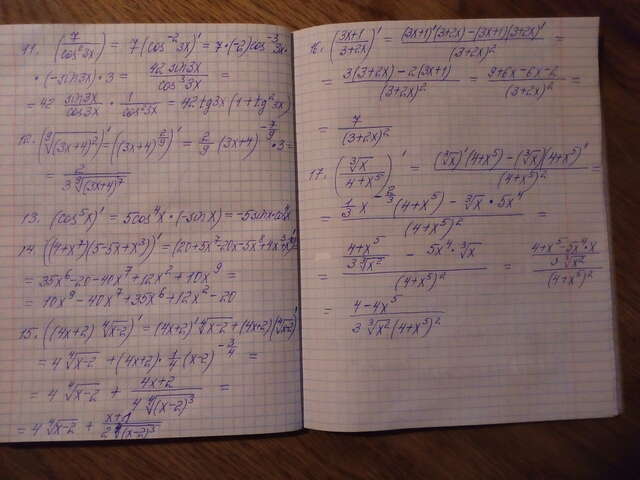 11. (7/cos²3x)' = 7(cos⁻²3x)' = 7·(-2)cos⁻³3x·
·(-sin3x)·3 = 42 sin3x/cos³3x =
= 42 sin3x/cos3x · 1/cos²3x = 42tg3x(1+tg²3x)
12. (⁹√(3x+4)²)' = ((3x+4)^(2/9))' = 2/9 (3x+4)^(-7/9)·3 =
= 2/(3 ⁹√(3x+4)⁷)
13. (cos⁵x)' = 5cos⁴x·(-sinx) = -5sinx·cos⁴x
14. ((4+x⁷)(5-5x+x³))' =
= 35x⁶-20-40x⁷+12x²+10x⁹ =
= 10x⁹-40x⁷+35x⁶+12x²-20
15. ((4x+2) ⁴√(x-2))' = (4x+2)' ⁴√(x-2) + (4x+2)(⁴√(x-2))'
= 4 ⁴√(x-2) + (4x+2)·1/4 (x-2)^(-3/4) =
= 4 ⁴√(x-2) + (4x+2)/(4 ⁴√(x-2)³) =
= 4 ⁴√(x-2) +
16. ((3x+1)/(3+2x))' = ((3x+1)'(3+2x)-(3x+1)(3+2x)')/(3+2x)² =
= (3(3+2x)-2(3x+1))/(3+2x)² = (9+6x-6x-2)/(3+2x)² =
= 7/(3+2x)²
17. (³√x/(4+x⁵))' = ((³√x)'(4+x⁵)-(³√x)(4+x⁵)')/(4+x⁵)² =
= (1/3 x^(-2/3)(4+x⁵) - ³√x·5x⁴)/(4+x⁵)² =
= ((4+x⁵)/(3 ³√x²) - 5x⁴·³√x)/(4+x⁵)² = ((4+x⁵-5x⁴·x)/(3 ³√x²))/(4+x⁵)²
= (4-4x⁵)/(3 ³√x²(4+x⁵)²)